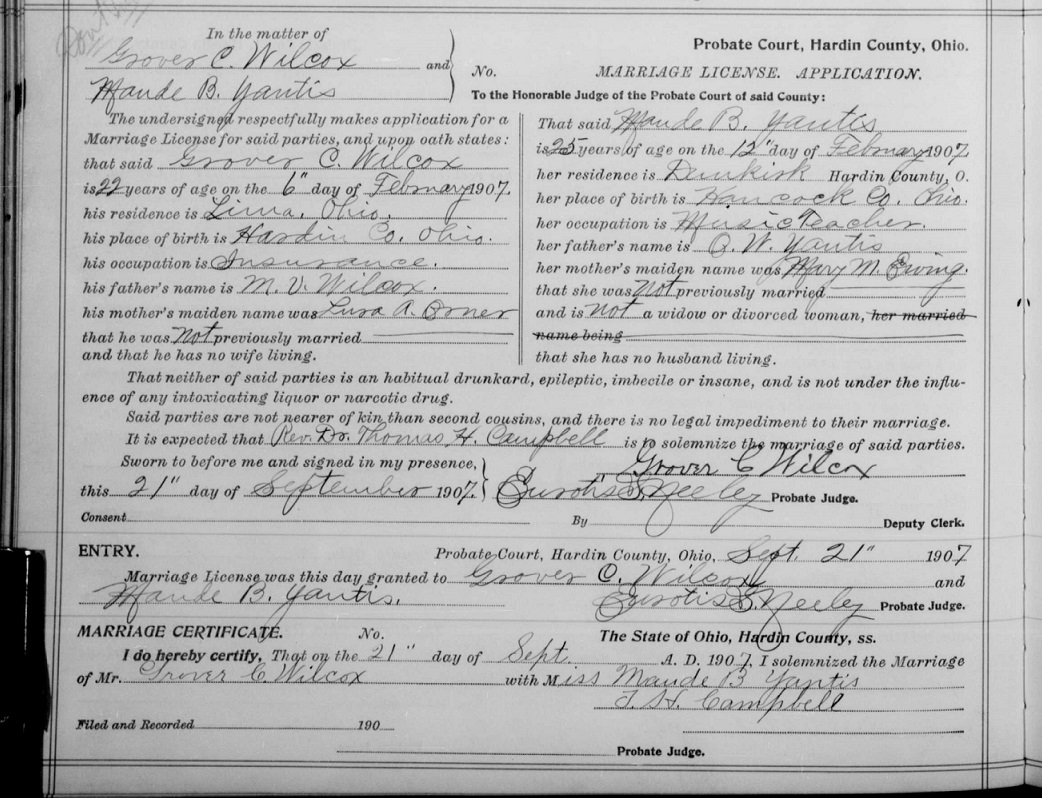 In the matter of
Grover C. Wilcox and
Maude B. Yantis
Probate Court, Hardin County, Ohio.
No. MARRIAGE LICENSE. APPLICATION.
To the Honorable Judge of the Probate Court of said County:
The undersigned respectfully makes application for a
Marriage License for said parties, and upon oath states:
that said Grover C. Wilcox
is 22 years of age on the 6" day of February 1907.
his residence is Lima, Ohio.
his place of birth is Hardin Co. Ohio.
his occupation is Insurance.
his father's name is M. V. Wilcox.
his mother's maiden name was A. Orner
that he was Not previously married
and that he has no wife living.
That said Maude B. Yantis
is 25 years of age on the 12" day of February 1907.
her residence is Dunkirk Hardin County, O.
her place of birth is Hancock Co. Ohio.
her occupation is Music Teacher.
her father's name is W. Yantis
her mother's maiden name was Mary M. Ewing.
that she was Not previously married
and is Not a widow or divorced woman, her married
name being
that she has no husband living.
That neither of said parties is an habitual drunkard, epileptic, imbecile or insane, and is not under the influ-
ence of any intoxicating liquor or narcotic drug.
Said parties are not nearer of kin than second cousins, and there is no legal impediment to their marriage.
It is expected that Rev. Dr. Thomas H. Campbell is to solemnize the marriage of said parties.
Sworn to before me and signed in my presence, Grover C Wilcox
this 21" day of September 1907. Neeley Probate Judge.
Consent By Deputy Clerk.
ENTRY. Probate Court, Hardin County, Ohio, Sept. 21" 1907
Marriage License was this day granted to Grover C. Wilcox and
Maude B. Yantis. Neeley Probate Judge.
MARRIAGE CERTIFICATE. No. The State of Ohio, Hardin County, ss.
I do hereby certify, That on the 21" day of Sept. A. D. 1907, I solemnized the Marriage
of Mr. Grover C Wilcox with Miss Maude B Yantis
T. H. Campbell
Filed and Recorded 190
Probate Judge.